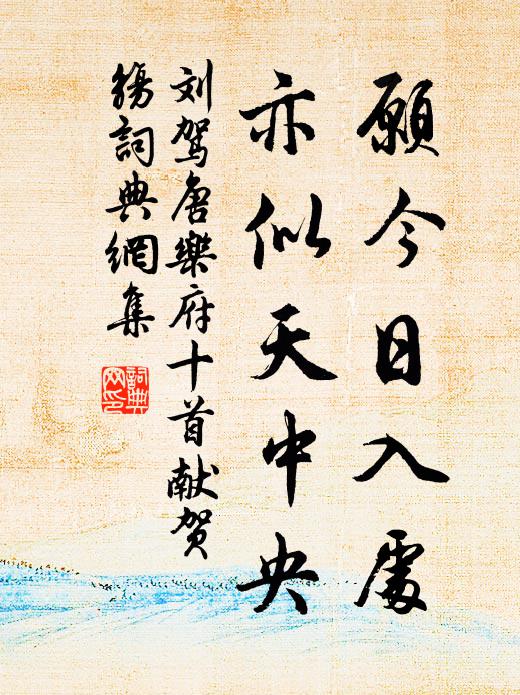 願今日入處
亦似天中央
刘驾唐樂府十首献贺
觴詞典網集
詞典
网印